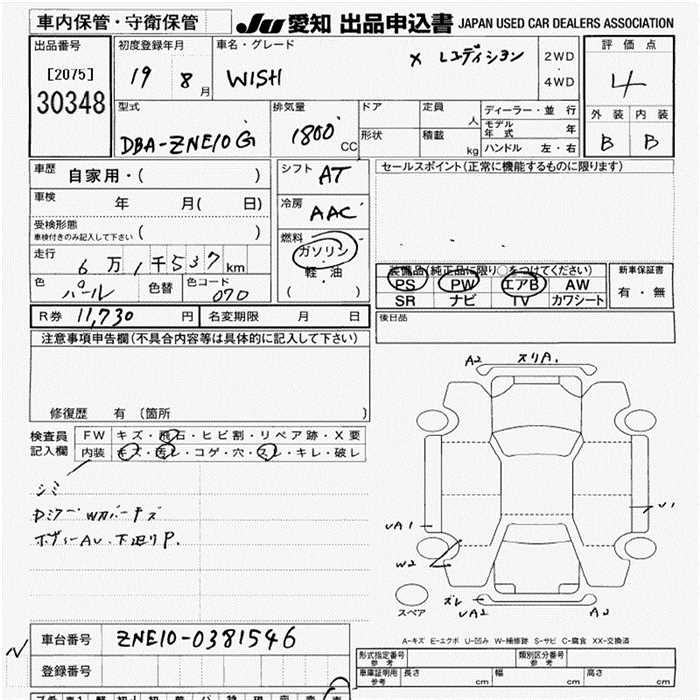 車内保管・守衛保管
JU 愛知 出品申込書 JAPAN USED CAR DEALERS ASSOCIATION
出品番号
[2075]
30348
初度登録年月
19 8 月
車名・グレード
WISH X Lエディション
2WD
・
4WD
評価点
4
外装 内装
B B
型式
DBA-ZNE10G
排気量
1800 CC
ドア
形状
定員
人
積載
kg
ディーラー・並行
モデル年式 年
ハンドル 左・右
車歴 自家用・( )
車検 年 月( 日)
受検形態
車検付きのみ記入して下さい ( )
走行 6万1千537km
色 パール 色替 色コード 070
シフト AT
冷房 AAC
燃料
ガソリン
・
軽・油
( )
セールスポイント(正常に機能するものに限ります)
装備品(純正品に限り○をつけてください)
PS PW エアB AW
SR ナビ TV カワシート
新車保証書
有・無
後日品
R券 11,730 円 名変期限 月 日
注意事項申告欄(不具合内容等は具体的に記入して下さい)
修復歴 有 (箇所 )
検査員記入欄
FW キズ・飛石・ヒビ割・リペア跡・X要
内装 キズ・汚レ・コゲ・穴・スレ・キレ・破レ
シミ
ボディーAU・下廻りP.
A2 スリA1
UA1
W2
U1
スペア
ズレ
UA2
A2
A-キズ E-エクボ U-凹み W-補修跡 S-サビ C-腐食 XX-交換済
車台番号 ZNE10-0381546
登録番号
形式指定番号
参考
類別区分番号
参考
車庫証明用
参考
長さ cm 幅 cm 高さ cm